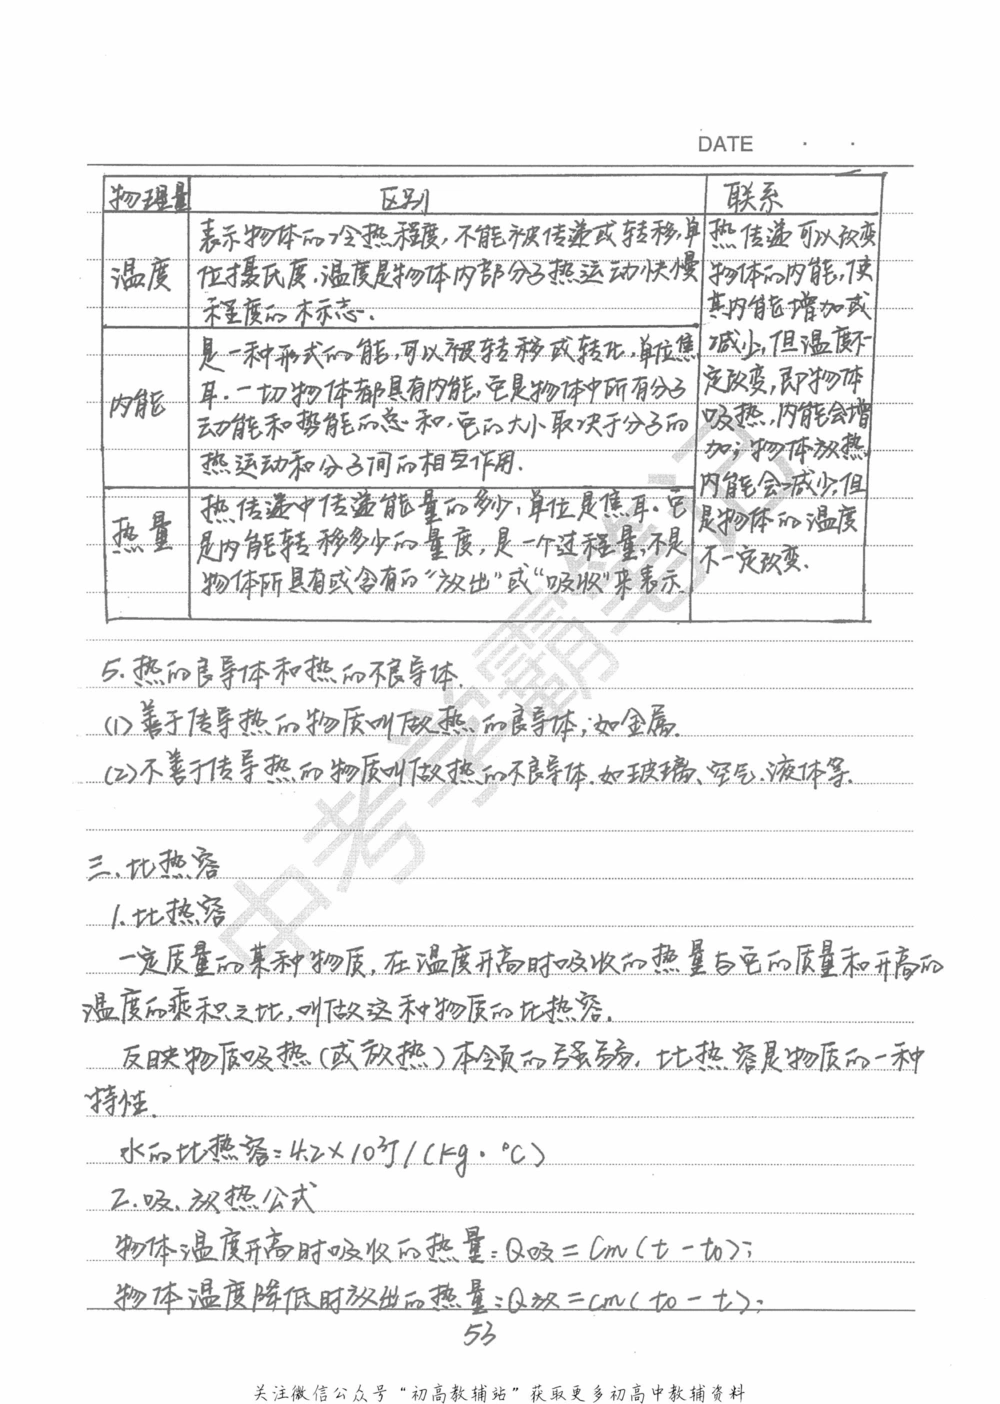 DATE · ·
物理量 区别 联系
温度
表示物体的冷热程度,不能被传递或转移,单
位摄氏度.温度是物体内部分子热运动快慢
程度的标志.
内能
是一种形式的能,可以被转移或转化,单位焦
耳.一切物体都具有内能,它是物体中所有分子
动能和势能的总和,它的大小取决于分子的
热运动和分子间的相互作用.
热量
热传递中传递能量的多少,单位是焦耳.它
是内能转移多少的量度,是一个过程量,不是
物体所具有或含有的“放出”或“吸收”来表示.
热传递可以改变
物体的内能,使
其内能增加或
减少,但温度不一
定改变,即物体
吸热,内能会增
加;物体放热
内能会减少,但
是物体的温度
不一定改变.
5.热的良导体和热的不良导体.
(1)善于传导热的物质叫做热的良导体,如金属.
(2)不善于传导热的物质叫做热的不良导体.如玻璃、空气、液体等.
三.比热容
1.比热容
一定质量的某种物质,在温度升高时吸收的热量与它的质量和升高的
温度的乘积之比,叫做这种物质的比热容.
反映物质吸热(或放热)本领的强弱,比热容是物质的一种
特性.
水的比热容=4.2×10³J/(kg·℃)
2.吸、放热公式
物体温度升高时吸收的热量:Q吸=cm(t-t0);
物体温度降低时放出的热量:Q放=cm(t0-t);
53
中考学霸笔记
关注微信公众号“初高教辅站”获取更多初高中教辅资料